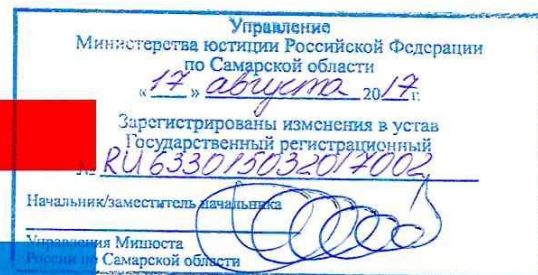 Управление
Министерства юстиции Российской Федерации
по Самарской области
«17» августа 2017г.
Зарегистрированы изменения в устав
Государственный регистрационный
№ RU633015032017002
Начальник/заместитель начальника
Управления Минюста
России по Самарской области